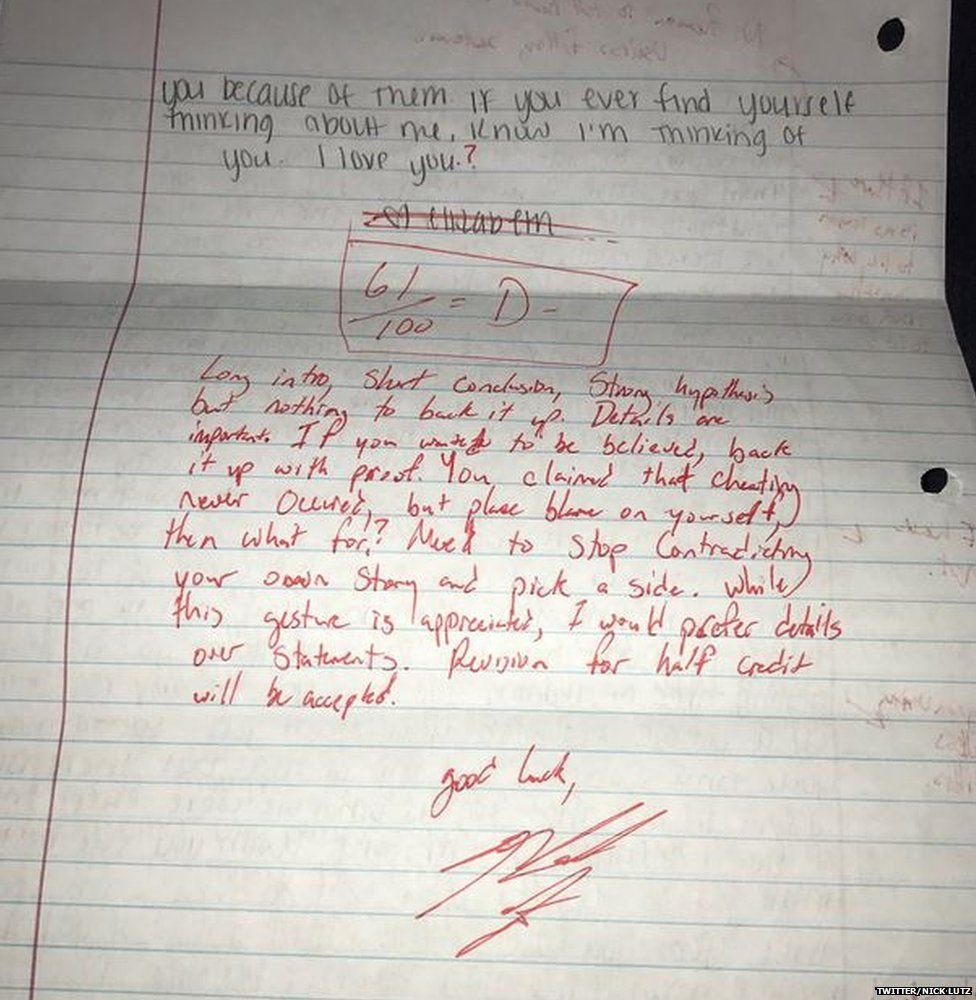 you because of them if you ever find yourself
thinking about me, know I'm thinking of
you. I love you.?
61/100 = D-
Long intro, short conclusion, strong hypothesis
but nothing to back it up. Details are
important. If you wanted to be believed, back
it up with proof. You claimed that cheating
never occured, but place blame on yourself,
then what for? Need to stop contradicting
your own story and pick a side. While
this gesture is appreciated, I would prefer details
over statements. Revision for half credit
will be accepted.
good luck,
TWITTER/NICK LUTZ